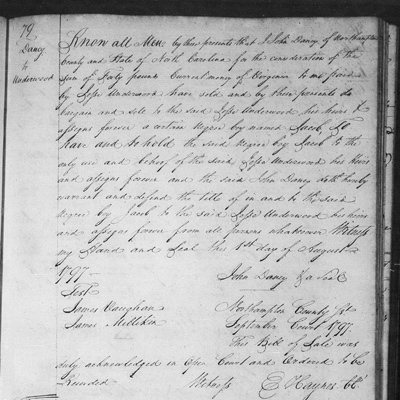 79
Dancy
to
Underwood
Know all Men by these presents that I John Dancy of Northampton
County and State of North Carolina for the consideration of the
Sum of Forty pounds Current money of Virginia to me paid
by Jesse Underwood have sold and by these presents do
bargain and sell to the said Jesse Underwood his heirs &
assigns forever a certain Negro boy named Jacob, To
have and to hold the said Negro boy Jacob to the
only use and behoof of the said Jesse Underwood his heirs
and assigns forever and the said John Dancy doth hereby
warrant and defend the title of in and to the said
Negro boy Jacob to the said Jesse Underwood his heirs
and assigns forever from all persons whatsoever Witness
my Hand and Seal this 1st day of August
1797
John Dancy & a Seal
Test
James Vaughan
Northampton County Sct
James Mellikin
September Court 1797
This Bill of Sale was
duly acknowledged in Open Court and Ordered to be
Recorded
Witness
E Haynes Clk